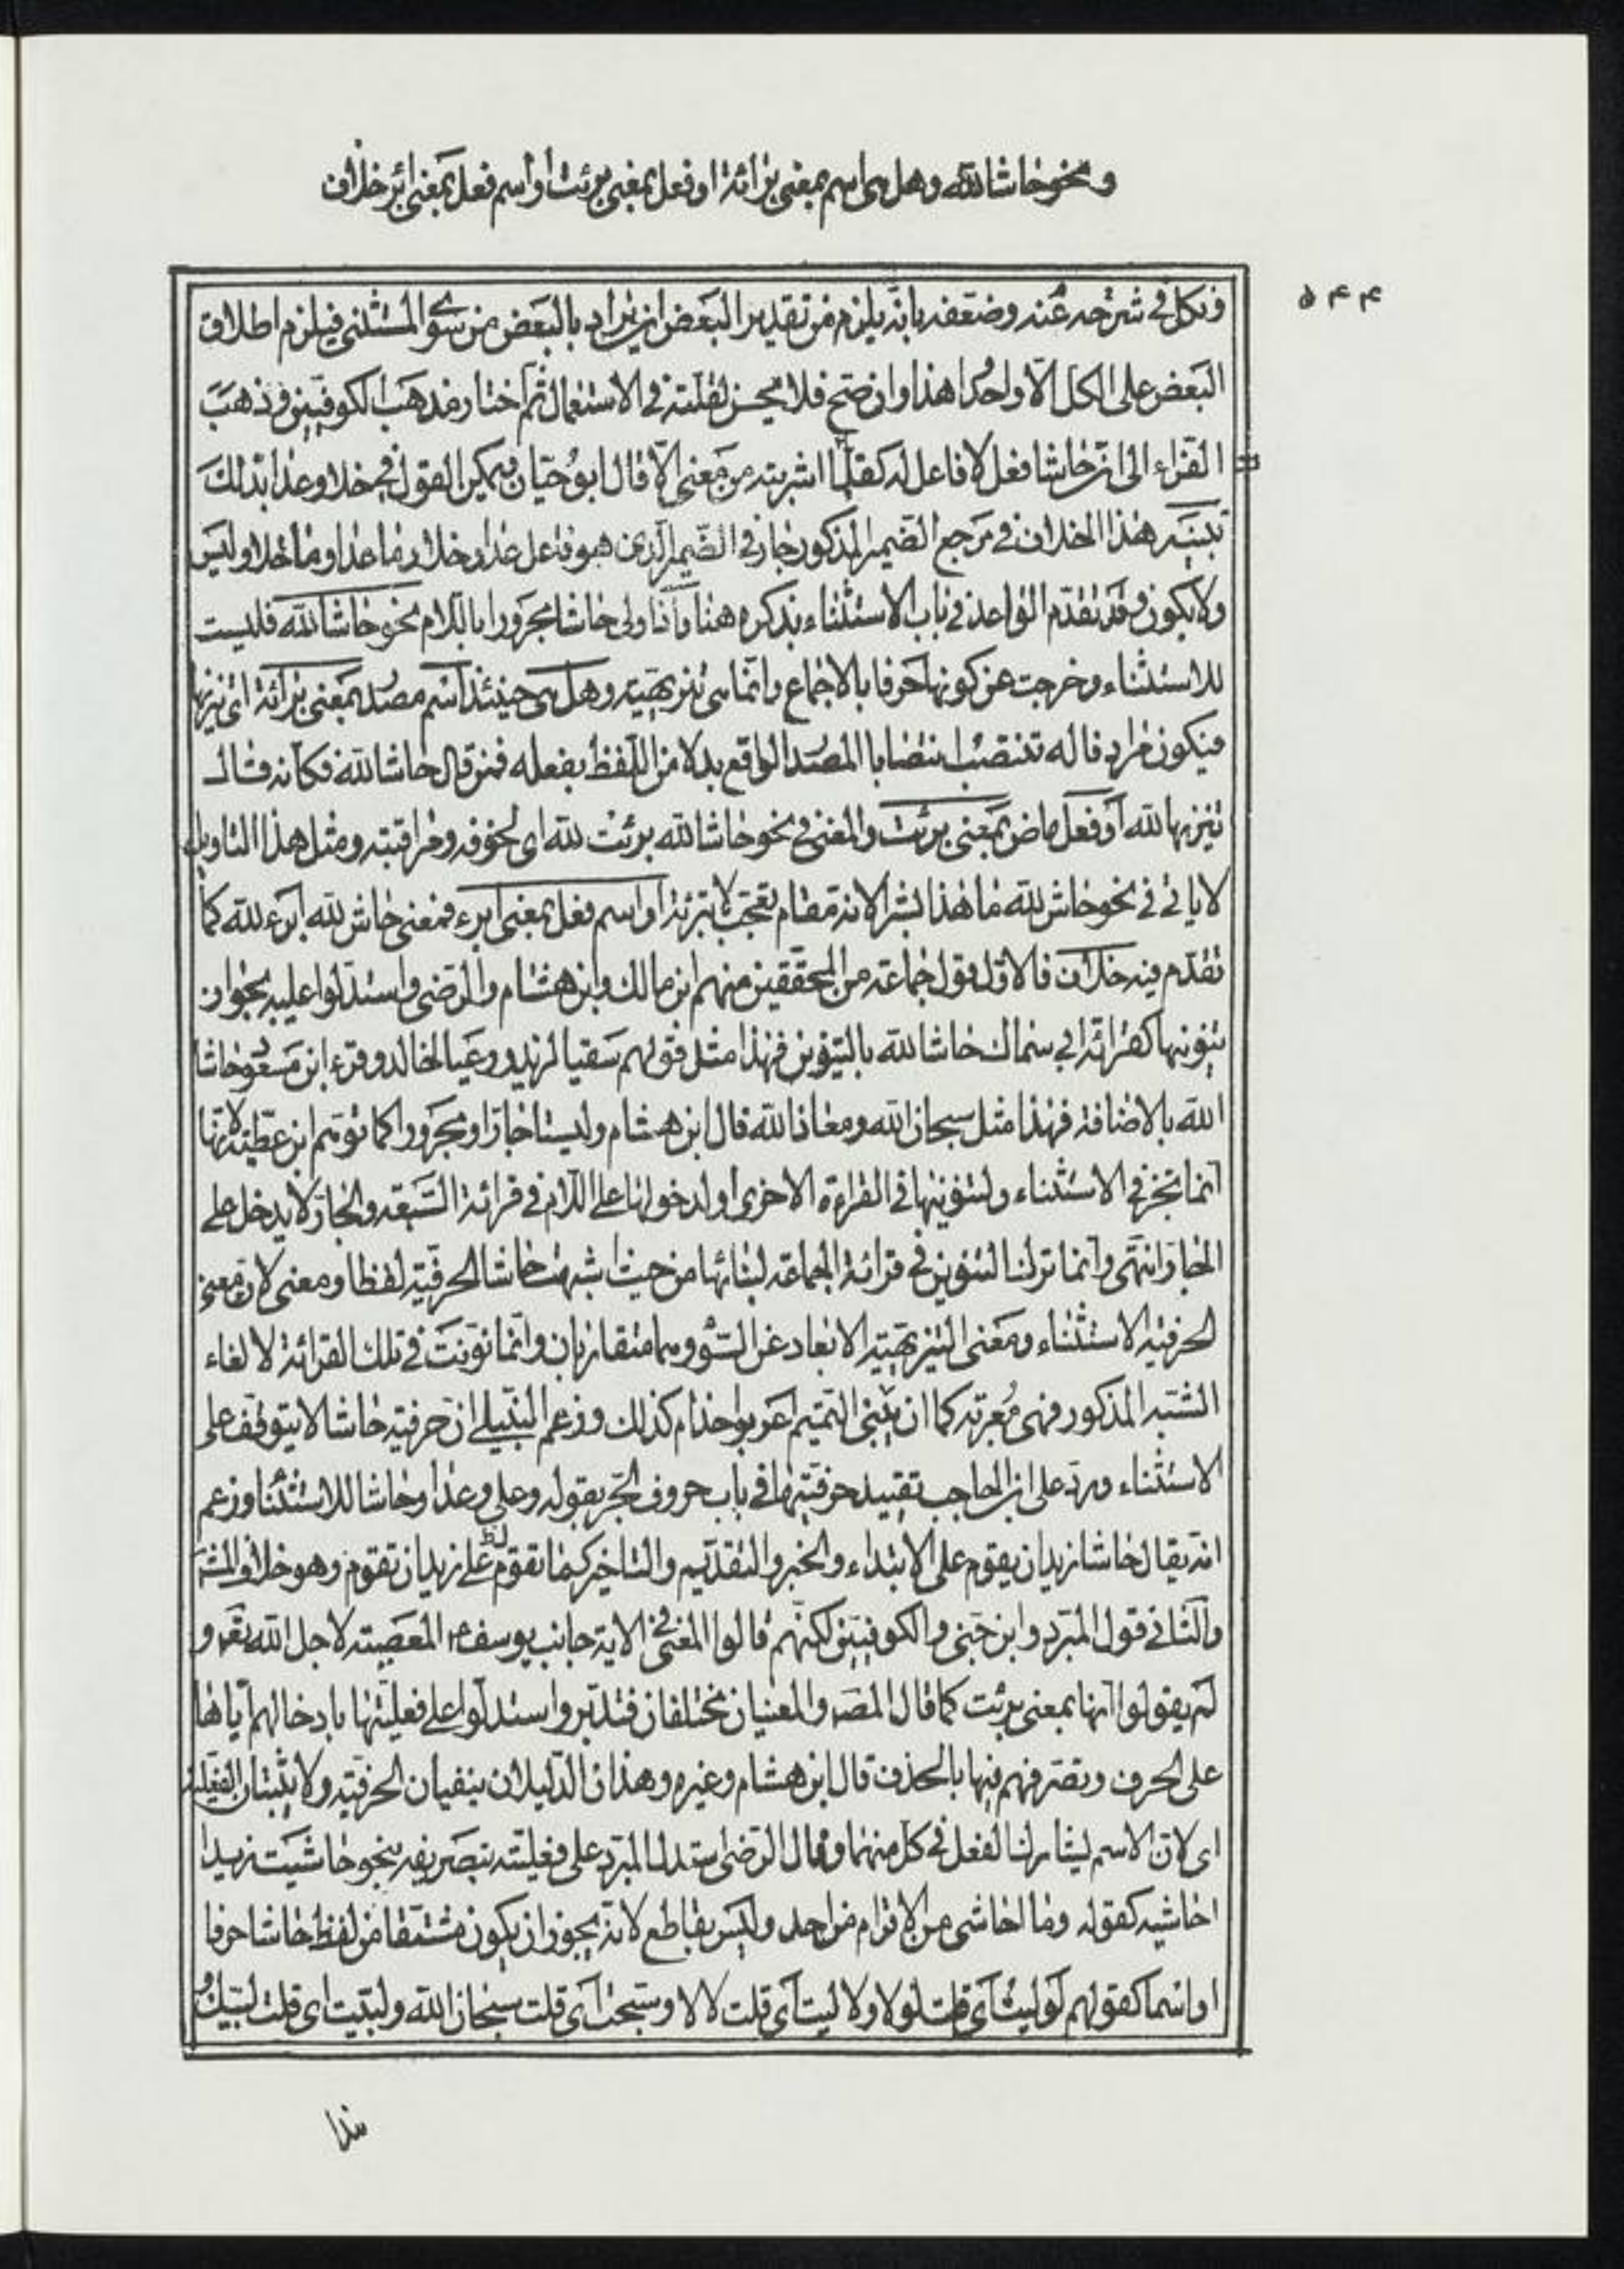 ونحو حاشا لله وهل هى اسم بمعنى برائة او فعل بمعنى برئت او اسم فعل بمعنى ابرء خلاف
۵۴۴
فى شرحه عنه وضعفه بانه يلزم من تقدير البعض ان يراد بالبعض من سوى المستثنى فيلزم اطلاق
البعض على الكل الا واحدا هذا وان صح فلا يحسن لقلته فى الاستعمال ثم اختار مذهب الكوفيين وذهب
الفراء الى ان حاشا فعل لا فاعل له كقلما اشربته من معنى الا قال ابو حيان ويمكن القول فى خلا وعدا بذلك
تنبيه هذا الخلاف فى مرجع الضمير المذكور جار فى الضمير الذى هو فاعل عدا وخلا وما عدا وما خلا وليس
ولا يكون وقد تقدم الواعد فى باب الاستثناء بذكره هنا واذا ولى حاشا مجرورا باللام نحو حاشا لله فليست
للاستثناء وخرجت عن كونها حرفا بالاجماع وانما هى تنزيهية وهل هى حينئذ اسم مصدر بمعنى برائة اى تنزيها
فيكون مراد قاله تنتصب انتصاب المصدر الواقع بدلا من اللفظ بفعله فمن قال حاشا لله فكانه قال
تنزيها لله او فعل ماض بمعنى برئت والمعنى فى نحو حاشا لله برئت لله اى لخوفه ومراقبته ومثل هذا التاويل
لا ياتى فى نحو حاش لله ما هذا بشرا لانه مقام تعجب لا تبرئة او اسم فعل بمعنى ابرء فمعنى حاش لله ابرء لله كما
تقدم فيه خلاف فالاول قول جماعة من المحققين منهم ابن مالك وابن هشام والرضى واستدلوا عليه بجواز
تنوينها كقرائة ابى سماك حاشا لله بالتنوين فهذا مثل قولهم سقيا لزيد ورعيا لخالد وقرء ابن مسعود حاشا
الله بالاضافة فهذا مثل سبحان الله ومعاذ الله قال ابن هشام وليستا جارا ومجرورا كما توهم ابن عطية لانها
انما تجر فى الاستثناء ولتنوينها فى القراءة الاخرى ولدخولها على اللام فى قرائة السبعة والجار لا يدخل على
الجار انتهى وانما ترك التنوين فى قرائة الجماعة لبنائها من حيث اشبهت حاشا الحرفية لفظا ومعنى لان معنى
الحرفية الاستثناء ومعنى التنزيهية الابعاد عن السوء وهما متقاربان وانما نونت فى تلك القرائة لالغاء
الشبه المذكور فهى معربة كما ان بنى التميم اعربوا حذام كذلك وزعم النبيلى ان حرفية حاشا لا يتوقف على
الاستثناء ورد على ابن الحاجب تقييد حرفيتها فى باب حروف الجر بقوله وعلى وعدا وحاشا للاستثناء وزعم
انه يقال حاشا زيد ان يقوم على الابتداء والخبر والتقديم والتاخير كما تقوم على زيد ان تقوم وهو خلاف المشهور
والثانى قول المبرد وابن جنى والكوفيين لكنهم قالوا المعنى فى الاية جانب يوسف ع المعصية لاجل الله تع و
لم يقولوا انها بمعنى برئت كما قال المص والمعنيان مختلفان فتدبر واستدلوا على فعليتها بادخالهم اياها
على الحرف وتصرفهم فيها بالحذف قال ابن هشام وغيره وهذان الدليلان ينفيان الحرفية ولا يثبتان الفعلية
اى لان الاسم يشارك الفعل فى كل منهما وقال الرضى استدل المبرد على فعليته بتصريفه بنحو حاشيت زيدا
احاشيه كقوله وما احاشى من الاقوام من احد وليس بقاطع لانه يجوز ان يكون مشتقا من لفظ حاشا حرفا
او اسما كقولهم لوليت اى قلت لولا ولا ليت اى قلت لا لا وسبحت اى قلت سبحان الله ولبيت اى قلت لبيك